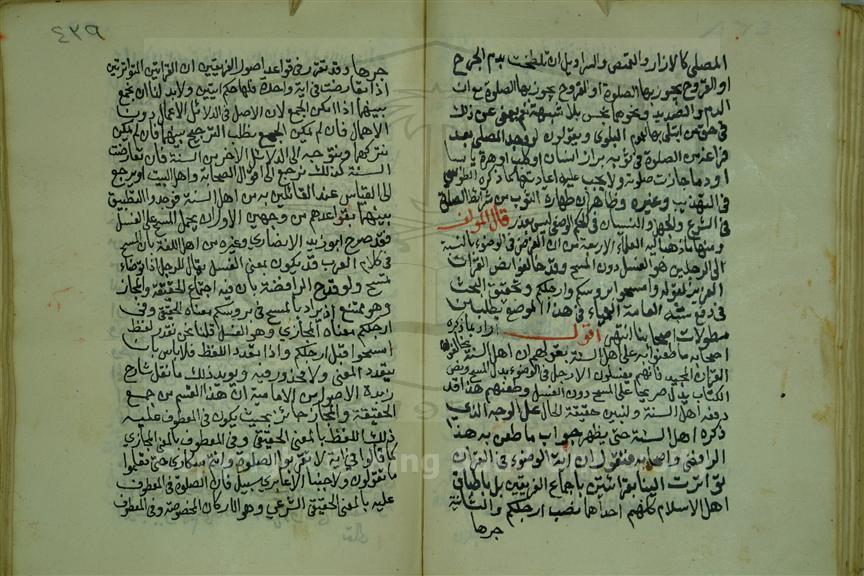 المصلي كالازار والقميص والسراويل ان تلطخت بدم الجرح
او القروح يجوز بها الصلوة او القروح يجوز بها الصلوة مع ان
الدم والصديد ونحوهما نجس بلا شبهة نعم يعفى عن ذلك
في حق من ابتلى بها لعموم البلوى ويقولون لو وجد المصلي بعد
فراغه من الصلوة في ثوبه براز انسان او كلب او هرة يابسا
او دما جازت صلوته ولا يجب عليه اعادتها كما ذكره الطوسي
في التهذيب وغيره وظاهر ان طهارة الثوب من شرائط الصلوة
في الشرع والجهل والنسيان في الحكم الوضعي ليس بعذر قال المؤلف
ومنها ما ذهب اليه العلماء الاربعة من ان الفرض في الوضوء بالنسبة
الى الرجلين هو الغسل دون المسح وقد خالفوا نص القرآن
العزيز لقوله وامسحوا برؤسكم وارجلكم وتحقيق البحث
في دفع شبه العامة الجهلاء في هذا الموضع يطلب من
مطولات اصحابنا انتهى اقول اراد بما ذكره
اصحابه ما طعنوا به على اهل السنة بقولهم ان اهل السنة يخالفون
القرآن المجيد فانهم يغسلون الارجل في الوضوء بدل المسح ونص
الكتاب يدل صريحا على المسح دون الغسل وطعنهم هذا قد
دفعه اهل السنة ولنبين حقيقة الحال على الوجه الذي
ذكره اهل السنة حتى يظهر جواب ما طعن به هذا
الرافضي واصحابه فنقول ان آية الوضوء في القرآن
تواترت الينا بقراءتين باجماع الفريقين بل باطباق
اهل الاسلام كلهم احداهما بنصب ارجلكم والثانية
جرها
٤٣٩
جرها وقد تقرر في قواعد اصول الفريقين ان القراءتين المتواترتين
اذا تعارضت في آية واحدة فلهما حكم آيتين ولا بد لنا ان نجمع
بينهما اذا امكن الجمع لان الاصل في الدلائل الاعمال دون
الاهمال فان لم يمكن الجمع نطلب الترجيح بينهما فان لم يمكن
نتركهما ونتوجه الى الدلائل الاخر من السنة فان تعارضت
السنة كذلك نرجع الى اقوال الصحابة واهل البيت او نرجع
الى القياس عند القائلين به من اهل السنة فوجدوا التطبيق
بينهما بقواعدهم من وجهين الاول ان يحمل المسح على الغسل
فقد صرح ابو زيد الانصاري وغيره من اهل اللغة بان المسح
في كلام العرب قد يكون بمعنى الغسل يقال للرجل اذا توضأ
تمسح ولو قدح الرافضة بان فيه اجتماع الحقيقة والمجاز
وهو ممتنع اذ يراد بالمسح في برؤسكم معناه الحقيقي وفي
ارجلكم معناه المجازي وهو الغسل قلنا نحن نقدر لفظ
امسحوا قبل ارجلكم واذا تعدد اللفظ فلا بأس بان
يتعدد المعنى ولا محذور فيه ويؤيد ذلك ما نقل شارح
زبدة الاصول من الامامية ان هذا القسم من جمع
الحقيقة والمجاز جائز بحيث يكون في المعطوف عليه
ذلك اللفظ بالمعنى الحقيقي وفي المعطوف بالمعنى المجازي
كما قالوا في آية لا تقربوا الصلوة وانتم سكارى حتى تعلموا
ما تقولون ولا جنبا الا عابري سبيل فان الصلوة في المعطوف
عليه بالمعنى الحقيقي الشرعي وهو الاركان المخصوصة وفي المعطوف